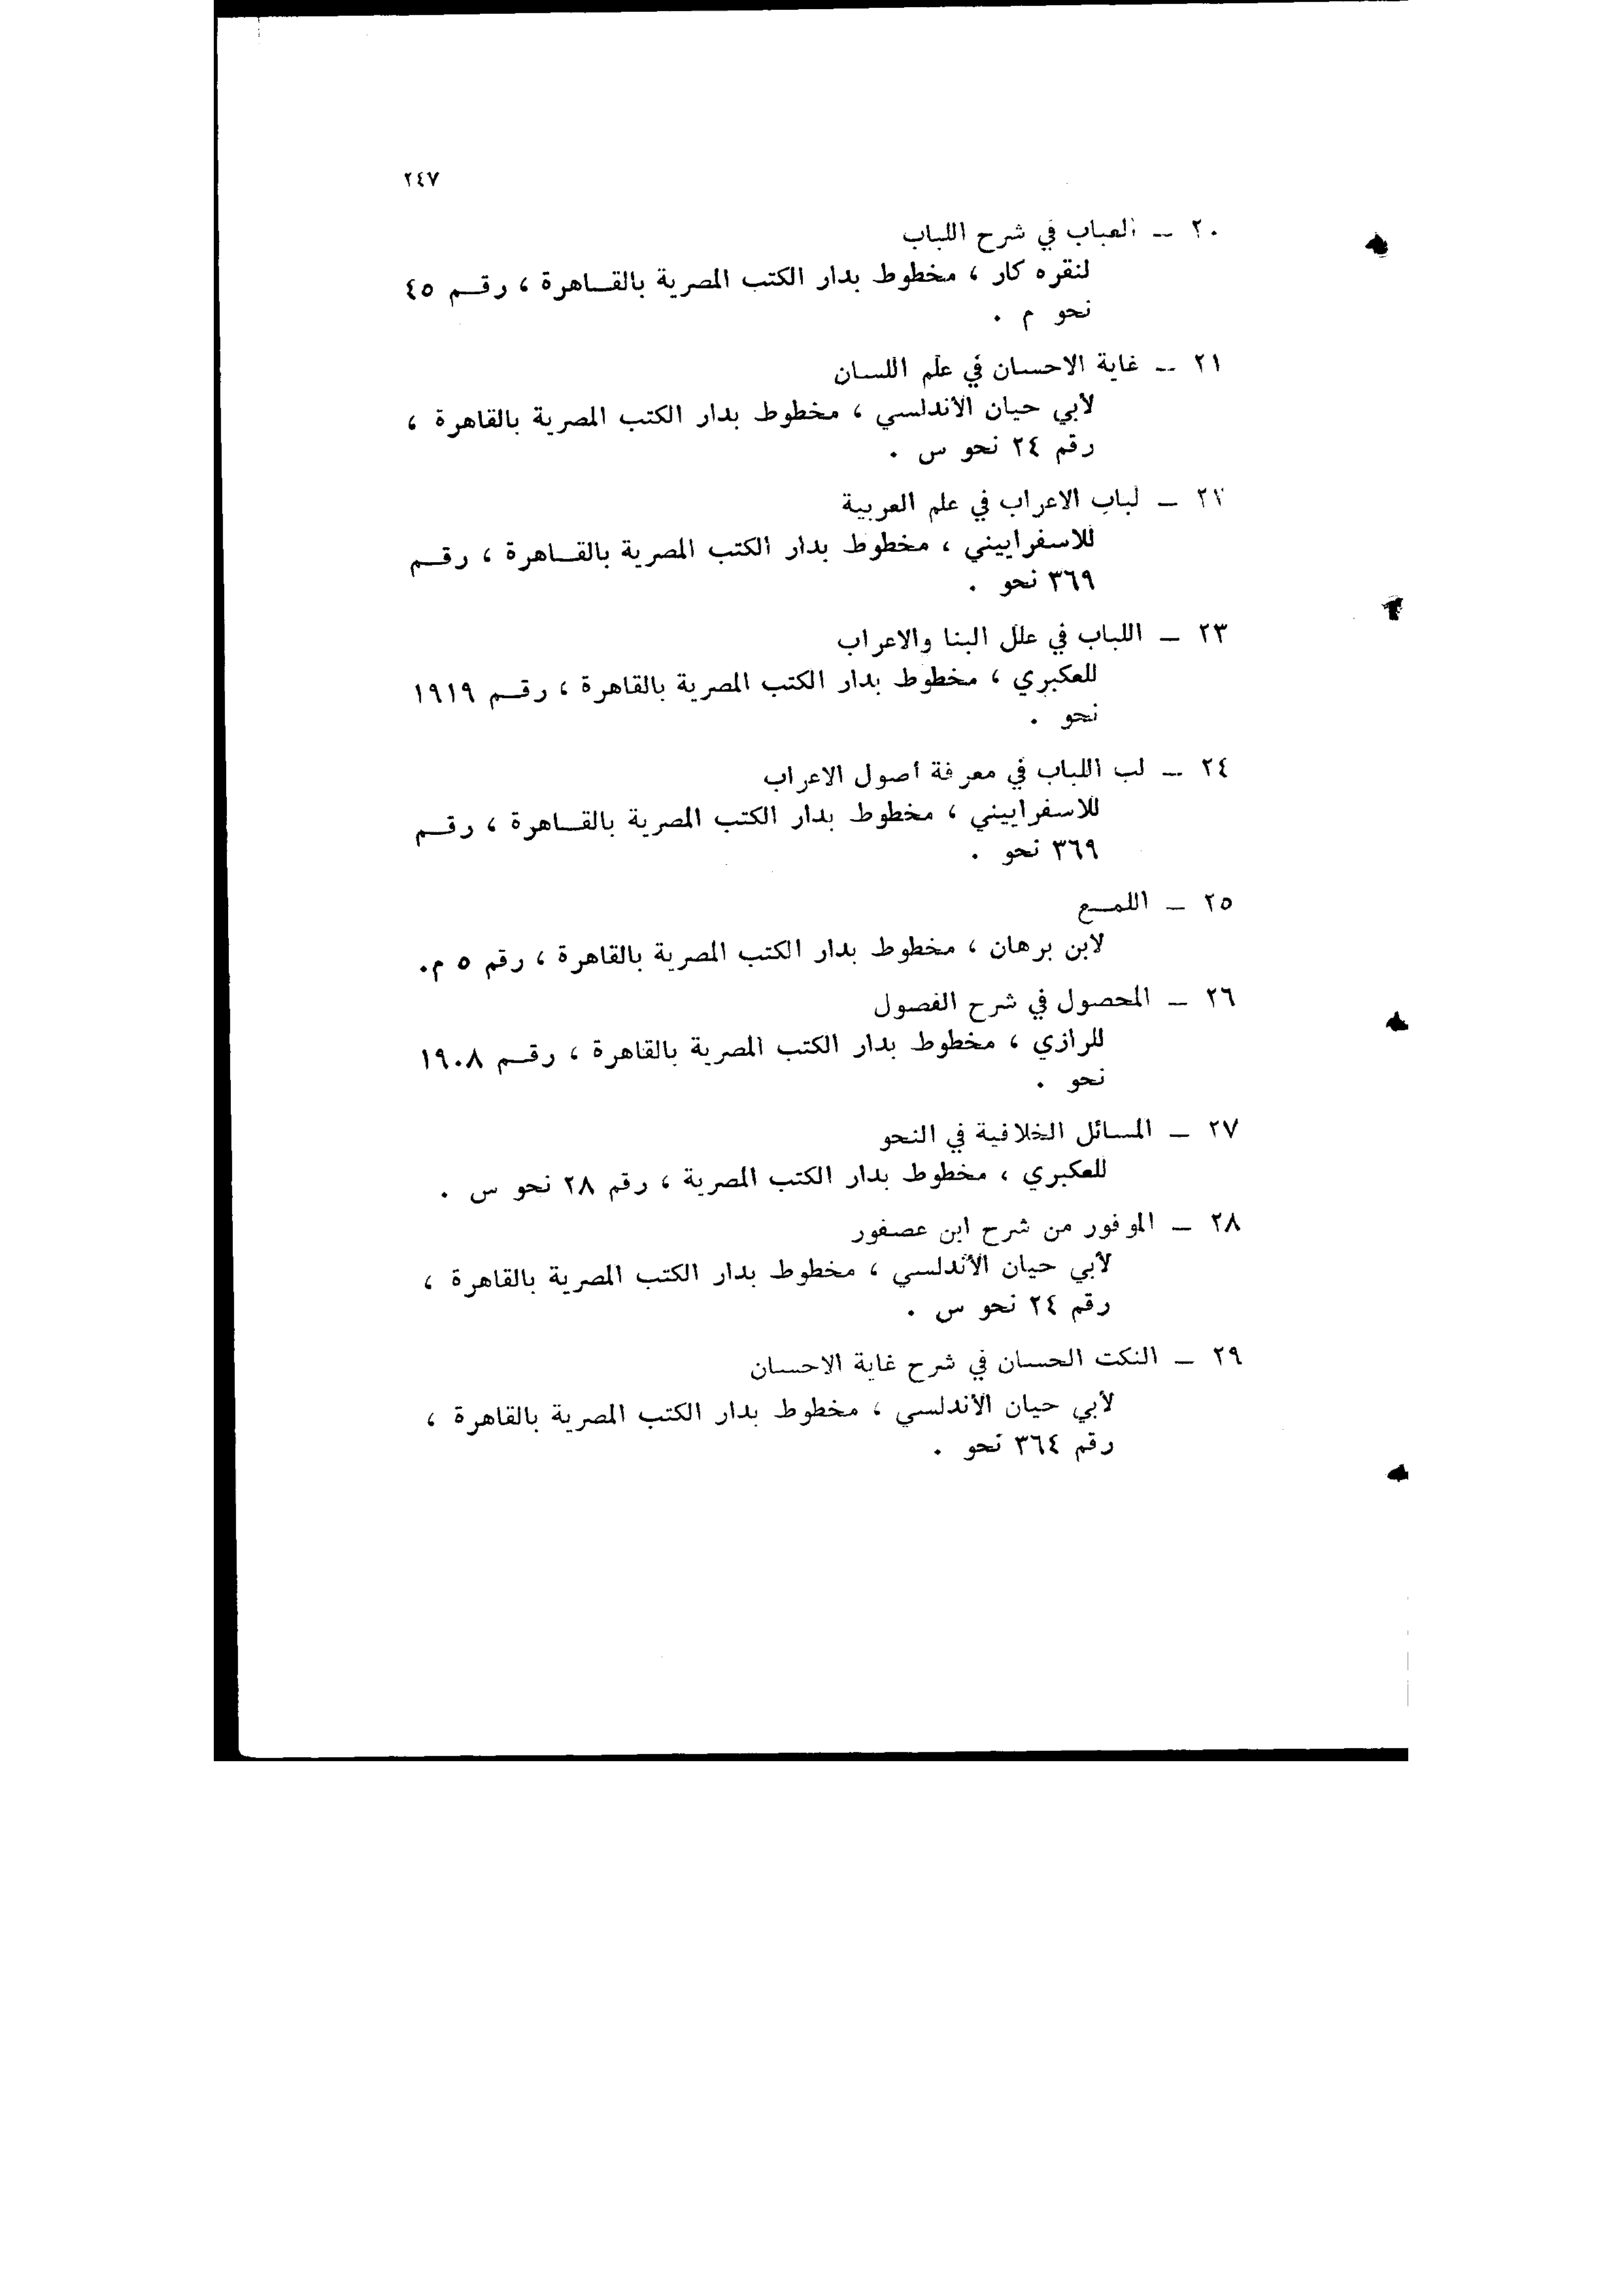 ٢٤٧
٢٠ ــ العباب في شرح اللباب
لنقره كار ، مخطوط بدار الكتب المصرية بالقـاهرة ، رقـم ٤٥
نحو م .
٢١ ــ غاية الاحسان في علم اللسان
لأبي حيان الأندلسي ، مخطوط بدار الكتب المصرية بالقاهرة ،
رقم ٢٤ نحو س .
٢٢ ــ لباب الاعراب في علم العربية
للاسفراييني ، مخطوط بدار الكتب المصرية بالقـاهرة ، رقـم
٣٦٩ نحو .
٢٣ ــ اللباب في علل البنا والاعراب
للعكبري ، مخطوط بدار الكتب المصرية بالقاهرة ، رقـم ١٩١٩
نحو .
٢٤ ــ لب اللباب في معرفة أصول الاعراب
للاسفراييني ، مخطوط بدار الكتب المصرية بالقـاهرة ، رقـم
٣٦٩ نحو .
٢٥ ــ اللمـع
لابن برهان ، مخطوط بدار الكتب المصرية بالقاهرة ، رقم ٥ م.
٢٦ ــ المحصول في شرح الفصول
للرازي ، مخطوط بدار الكتب المصرية بالقاهرة ، رقـم ١٩٠٨
نحو .
٢٧ ــ المسائل الخلافية في النحو
للعكبري ، مخطوط بدار الكتب المصرية ، رقم ٢٨ نحو س .
٢٨ ــ الموفور من شرح ابن عصفور
لأبي حيان الأندلسي ، مخطوط بدار الكتب المصرية بالقاهرة ،
رقم ٢٤ نحو س .
٢٩ ــ النكت الحسان في شرح غاية الاحسان
لأبي حيان الأندلسي ، مخطوط بدار الكتب المصرية بالقاهرة ،
رقم ٣٦٤ نحو .